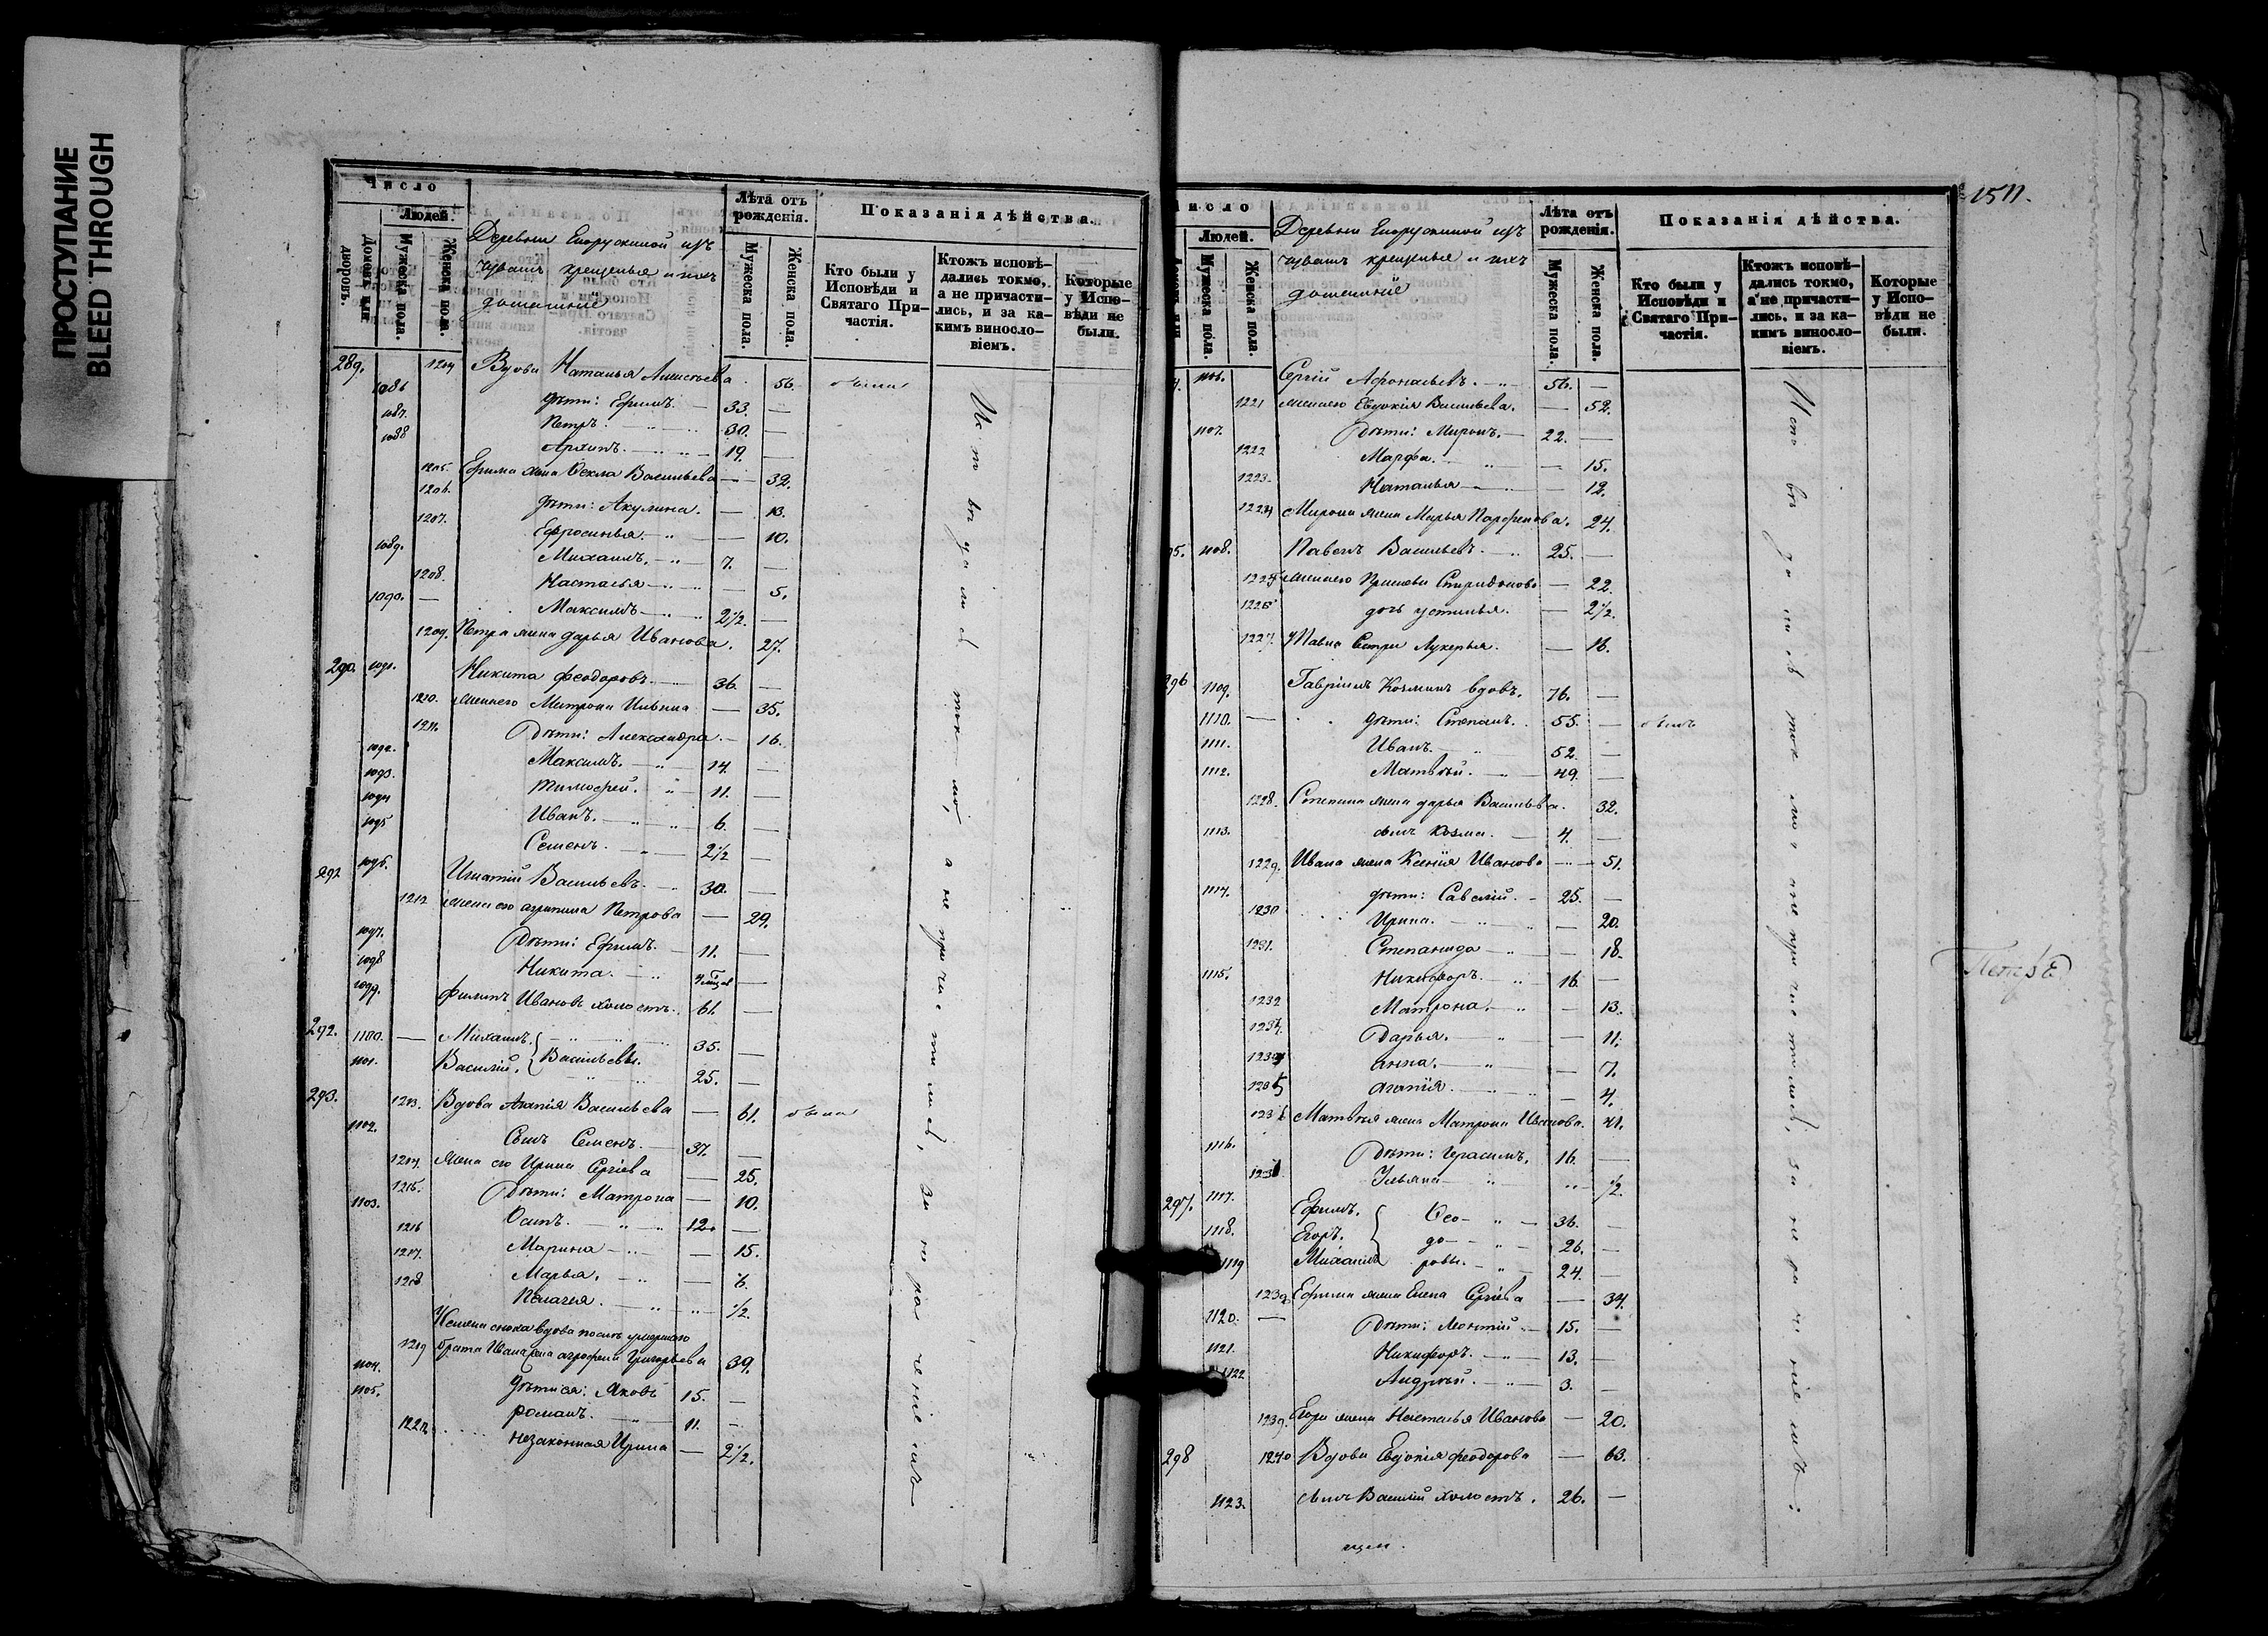 ПРОСТУПАНИЕ
BLEED THROUGH
Число
Людей.
Домовъ или дворовъ.
Мужеска пола.
Женска пола.
Деревни
изъ
чувашъ крещеныя и ихъ
домашніе
Лѣта отъ рожденія.
Мужеска пола.
Женска пола.
Показанія дѣйства.
Кто были у Исповѣди и Святаго Причастія.
Ктожъ исповѣдались токмо, а не причастились, и за какимъ винословіемъ.
Которые у Исповѣди не были.
289. 1204 Вдова Наталья 56. были
1086 дѣти: Ефимъ. 33. —
1087. Петръ. 30. —
1088 Архипъ. 19. —
1205. Ефима жена Ѳекла Васильева — 32.
1206. дѣти: Акулина. — 13.
1207. Ефросинья. — 10.
1089. Михаилъ. 7. —
1208. Настасья — 5.
1090. — Максимъ 2½. —
1209. Петра жена дарья Иванова. 27.
290. 1091. Никита Феодоровъ. 36. —
1210. жена его Матрона Ильина — 35.
1211. Дѣти: Александра. — 16.
1092. Максимъ. 14. —
1093. Тимофей. 11. —
1094 Иванъ. 6. —
1095 Семенъ. 2½ —
291 1096. Игнатій Васильевъ. 30. —
1212 жена его агрипина Петрова — 29.
1097. Дѣти: Ефимъ. 11. —
1098 Никита.
1099. Филипъ Ивановъ холостъ. 61. —
292. 1100. — Михаилъ. 35. —
1101. Василій. } Васильевы. 25. —
293. 1213. Вдова Агапія Васильева — 61. была
1102. Сынъ Семенъ. 37. —
1214. Жена его Ирина Сергіева — 25.
1215. Дѣти: Матрона — 10.
1103. Осипъ. 12. —
1216 Марина — 15.
1217. Марья. — 6.
1218 Пелагея. ½.
Семена сноха вдова послѣ умершаго
1219 брата Ивана жена агрофена Григорьева 39.
1104. дѣти ея: Яковъ 15. —
1105. романъ. 11. —
1220. незаконная Ирина — 2½.
Исповѣдались токмо, а не причастились, за нераченіемъ
1511.
Число
Людей.
Мужеска пола.
Женска пола.
Деревни
изъ
чувашъ крещеныя и ихъ
домашніе
Лѣта отъ рожденія.
Мужеска пола.
Женска пола.
Показанія дѣйства.
Кто были у Исповѣди и Святаго Причастія.
Ктожъ исповѣдались токмо, а не причастились, и за какимъ винословіемъ.
Которые у Исповѣди не были.
4. 1106. Сергій Афонасьевъ. 56. —
1221 жена его Евдокія Васильева. — 52.
1107. Дѣти: Миронъ. 22. —
1222 Марфа. — 15.
1223. Наталья — 12.
1224 Мирона жена Марья Парфенова. 24.
95. 1108. Павелъ Васильевъ. 25. —
1225 жена его Спиридонова — 22.
1226 дочь устинья. — 2½.
1227. Павла Сестра Лукерья. — 16.
296 1109. Гавріилъ Козминъ вдовъ. 76. —
1110. — дѣти: Степанъ. 55. — былъ
1111. Иванъ. 52. —
1112. Матвѣй. 49. —
1228. Степана жена дарья Васильева. 32.
1113. сынъ Козма. 4. —
1229. Ивана жена Ксенія Иванова — 51.
1114. дѣти: Савелій. 25. —
1230 Ирина. — 20.
1231. Степанида — 18.
1115. Никифоръ. 16. —
1232 Матрона. — 13.
Дарья. — 11.
анна. — 7.
агапія — 4.
1236 Матвѣя жена Матрона Иванова. 41.
1116. Дѣти: Герасимъ. 16. —
Ульяна ½.
297. 1117. Ефимъ. Ѳео- 36. —
1118. Егоръ. до- 26. —
1119 Михаилъ ровы. 24. —
Ефима жена Елена Сергіева — 34.
1120. — Дѣти: Леонтій 15. —
1121. Никифоръ. 13. —
1122 Андрей. 3. —
1239. Егора жена Настасья Иванова — 20.
298 1240 Вдова Евдокія Феодорова — 63.
1123. сынъ Василій холостъ. 26. —
Исповѣдались токмо а не причастились, за нераченіемъ: